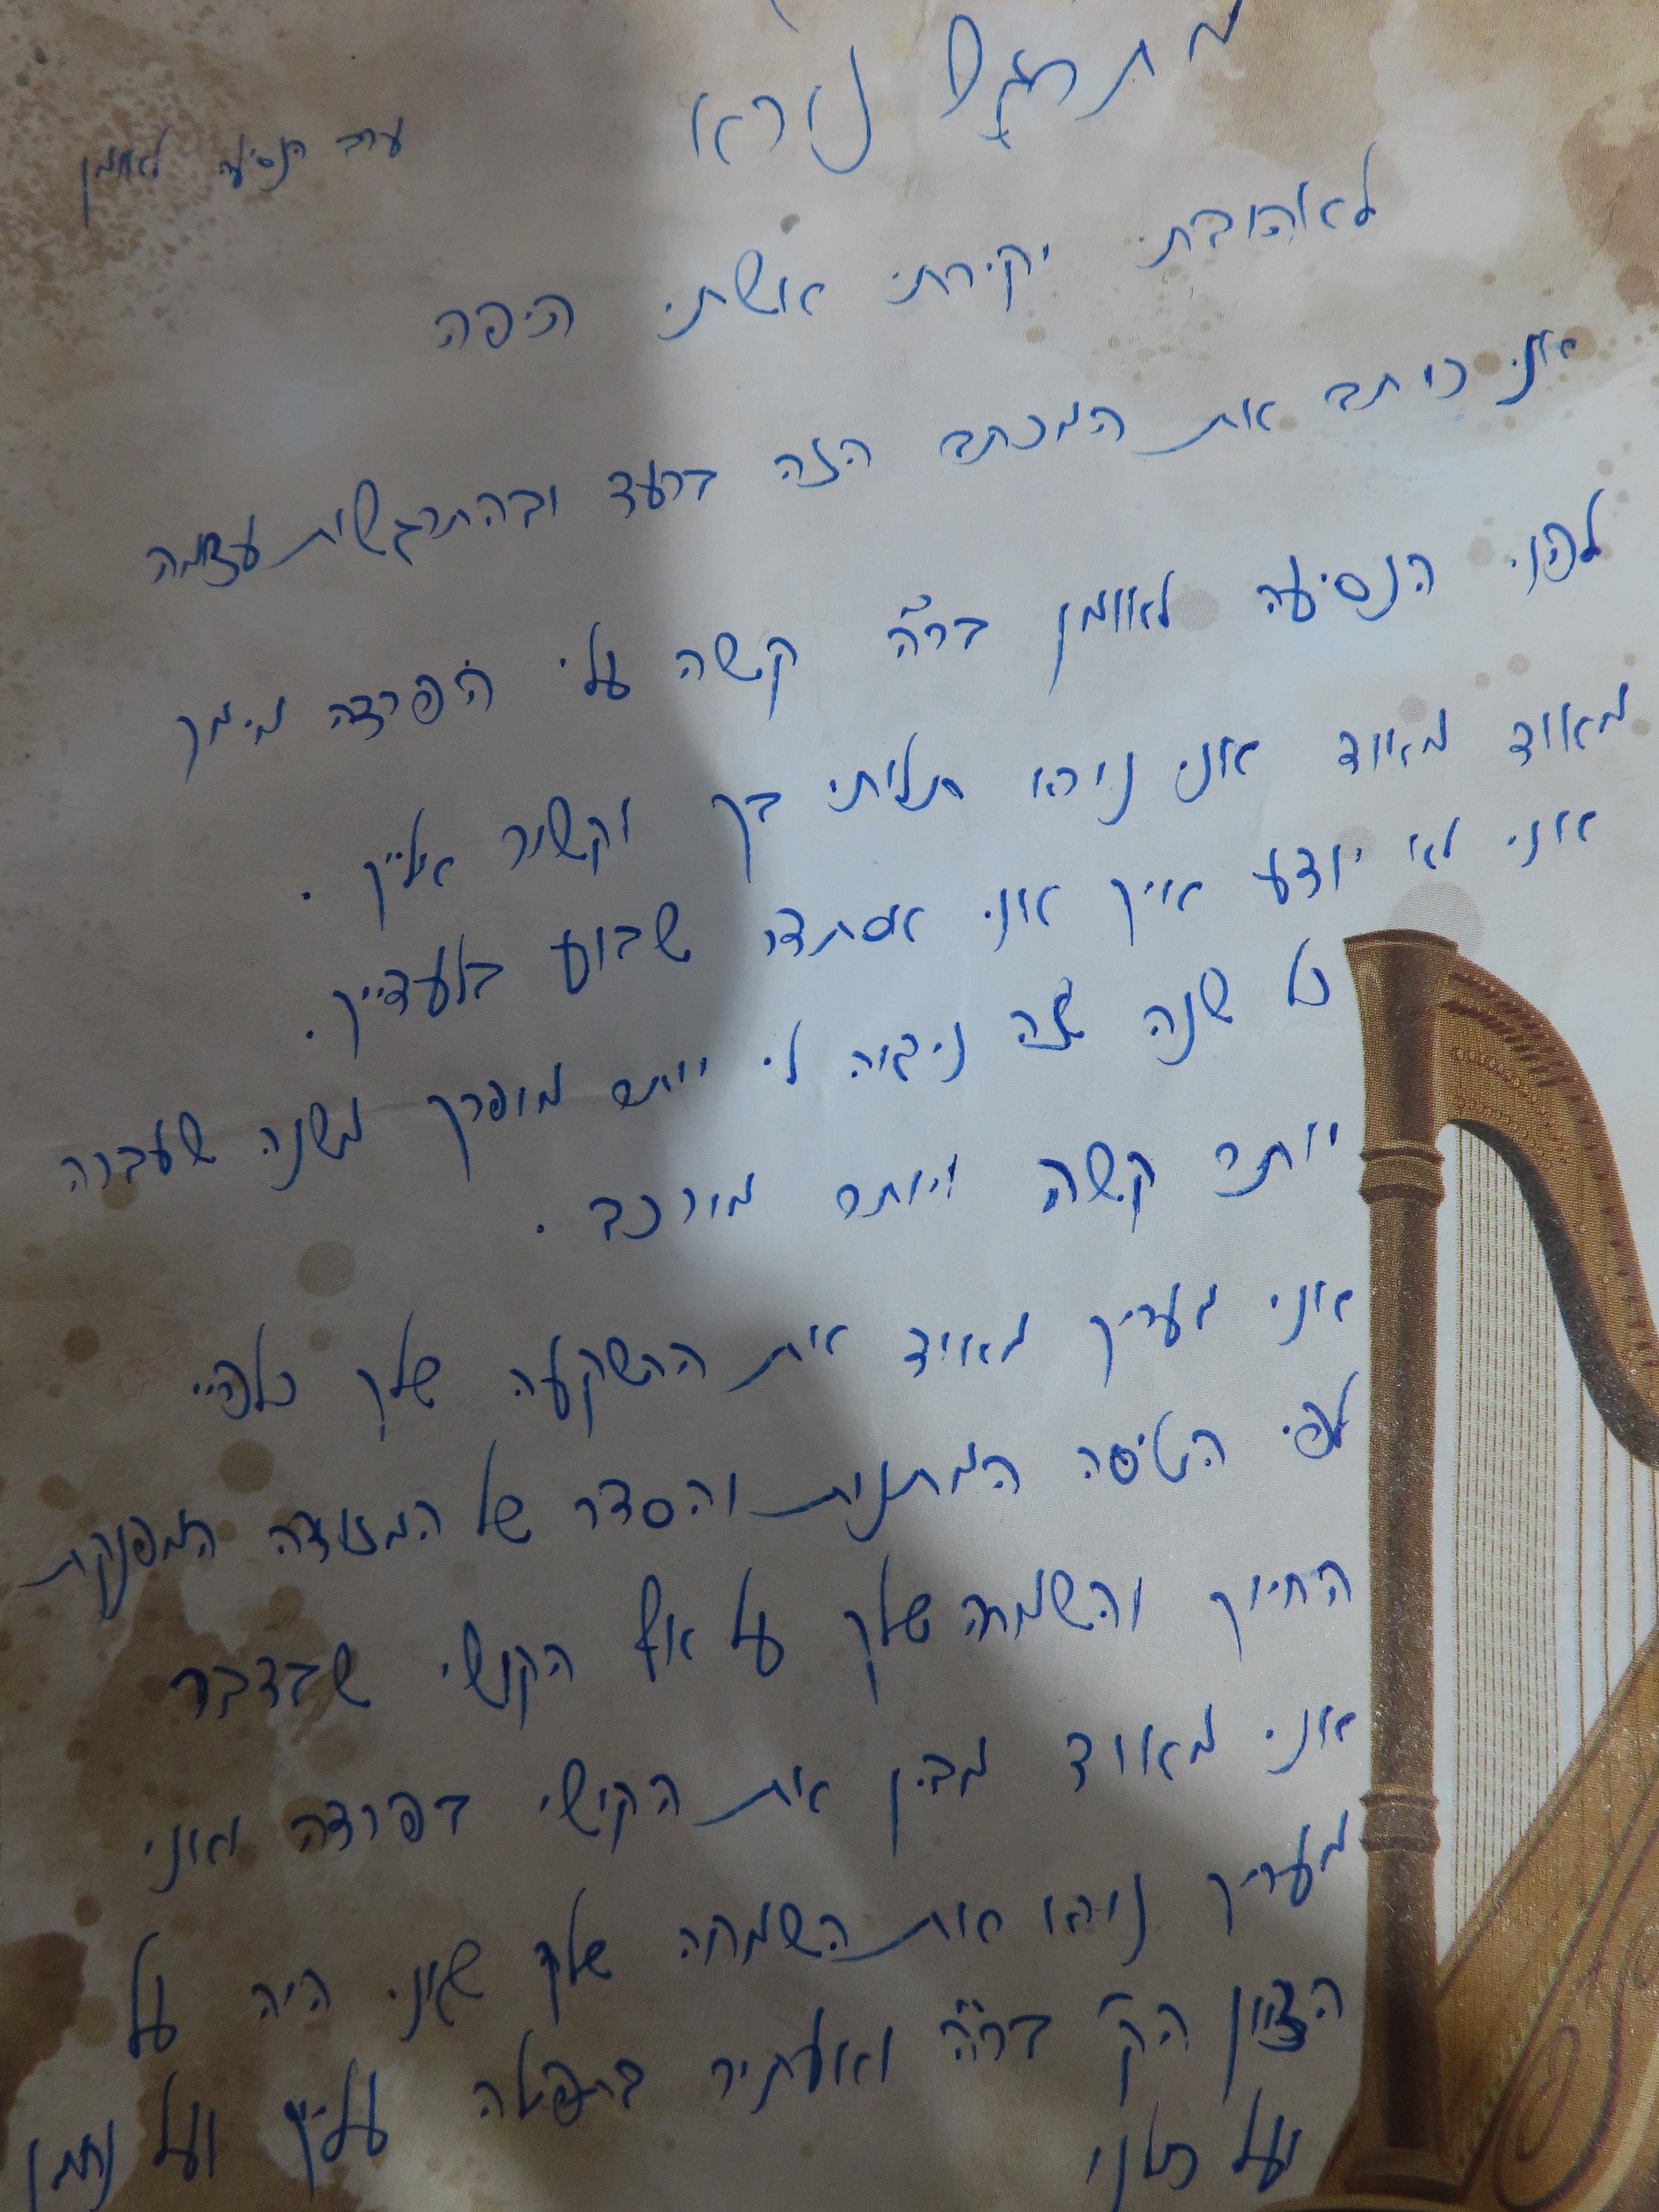 מתרגש נורא
ערב הנסיעה לאומן
לאהובתי יקירתי אשתי היפה
אני כותב את המכתב הזה ברעד ובהתרגשות עצומה
לפני הנסיעה לאומן בר"ה קשה עלי הפרדה מימך
מאוד מאוד אני נורא תלותי בך וקשור אליך.
אני לא יודע איך אני אסתדר שבוע בלעדייך.
כל שנה שזה נראה לי יותר מופרך משנה שעברה
יותר קשה ויותר מורכב.
אני מעריך מאוד את ההשקעה שלך כלפיי
לפני הטיסה המתנות והסדר של המזוודה המפנקת
החיוך והשמחה שלך על אף הקושי שבדבר
אני מאוד מבין את הקושי בפרדה ואני
מעריך נורא את השמחה שלך שאני היה על
הציון הק' בר"ה ואעתיר בתפילה עלייך ועל נחמן
ועל כולנו